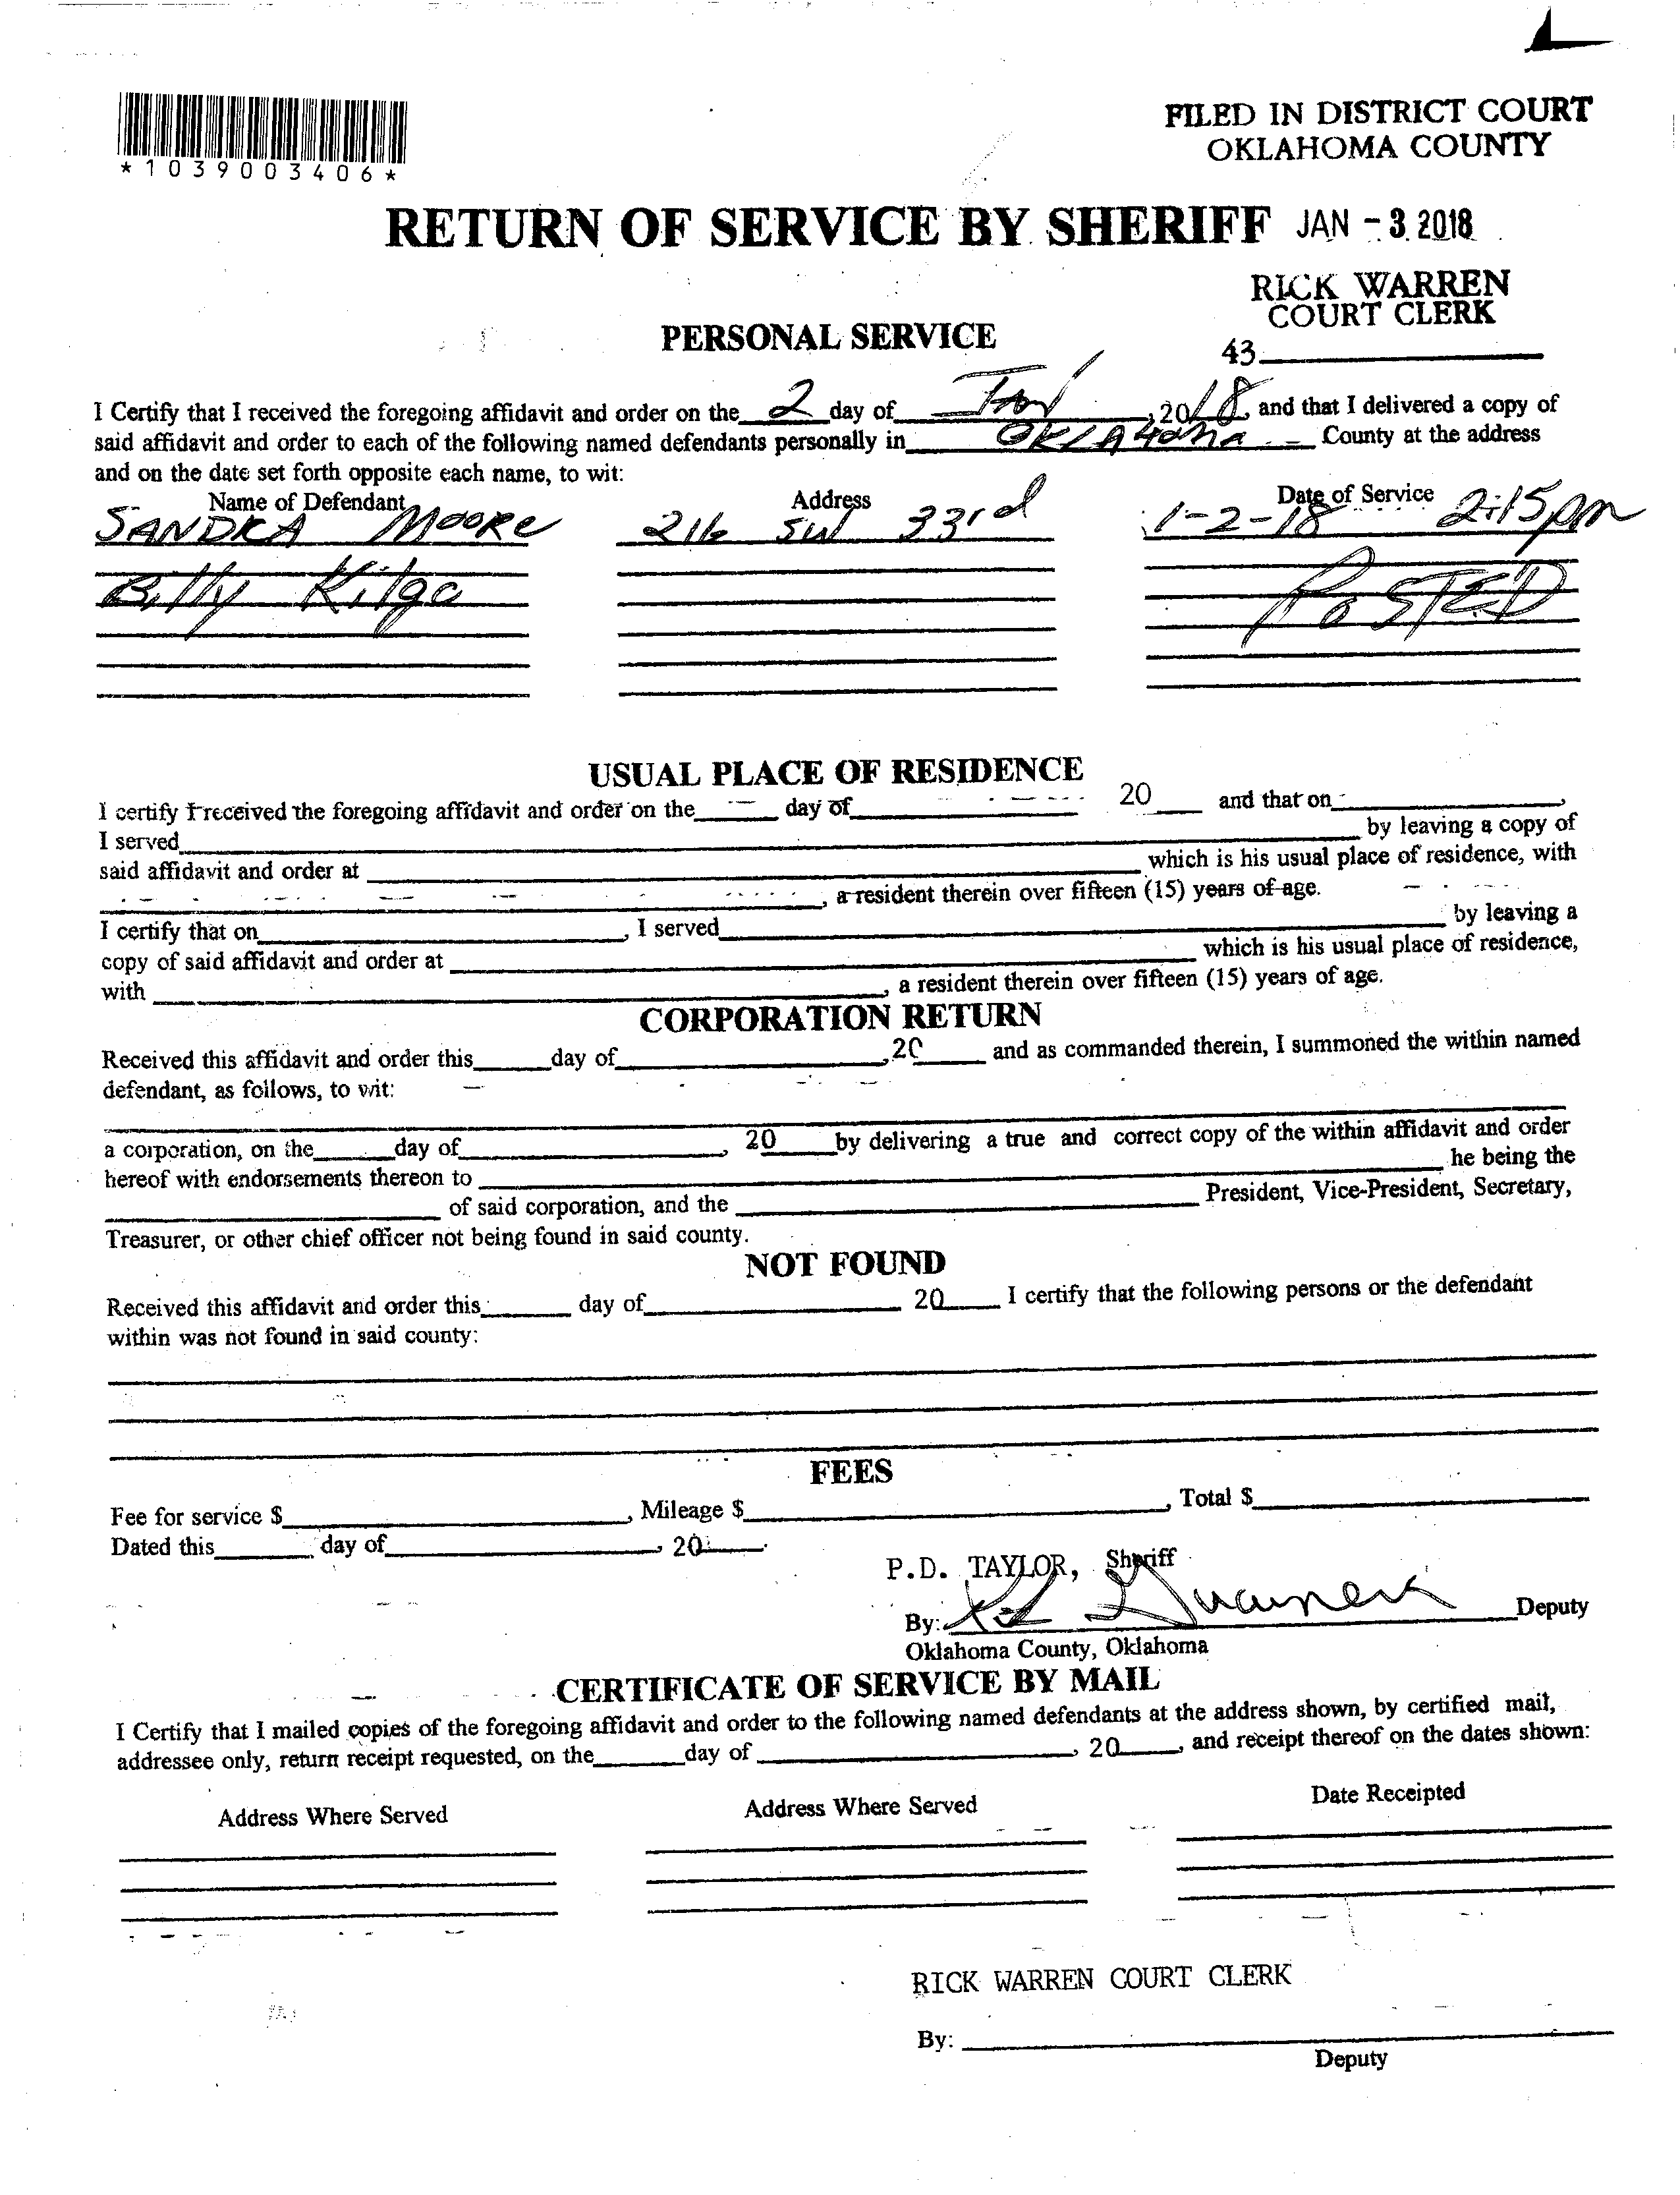 FILED IN DISTRICT COURT
OKLAHOMA COUNTY
*1039003406*
RETURN OF SERVICE BY SHERIFF JAN - 3 2018
RICK WARREN
COURT CLERK
PERSONAL SERVICE
43
I Certify that I received the foregoing affidavit and order on the 2 day of Jan, 2018, and that I delivered a copy of
said affidavit and order to each of the following named defendants personally in OKLAHOMA County at the address
and on the date set forth opposite each name, to wit:
Name of Defendant Address Date of Service
SANDRA MOORE 216 SW 33rd 1-2-18 2:15pm
Billy Kilgo POSTED
USUAL PLACE OF RESIDENCE
I certify I received the foregoing affidavit and order on the day of 20 and that on ,
I served by leaving a copy of
said affidavit and order at which is his usual place of residence, with
, a resident therein over fifteen (15) years of age.
I certify that on , I served by leaving a
copy of said affidavit and order at which is his usual place of residence,
with , a resident therein over fifteen (15) years of age.
CORPORATION RETURN
Received this affidavit and order this day of ,20 and as commanded therein, I summoned the within named
defendant, as follows, to wit:
a corporation, on the day of , 20 by delivering a true and correct copy of the within affidavit and order
hereof with endorsements thereon to he being the
of said corporation, and the President, Vice-President, Secretary,
Treasurer, or other chief officer not being found in said county.
NOT FOUND
Received this affidavit and order this day of 20 I certify that the following persons or the defendant
within was not found in said county:
FEES
Fee for service $ , Mileage $ , Total $
Dated this day of , 20
P.D. TAYLOR, Sheriff
By: Deputy
Oklahoma County, Oklahoma
CERTIFICATE OF SERVICE BY MAIL
I Certify that I mailed copies of the foregoing affidavit and order to the following named defendants at the address shown, by certified mail,
addressee only, return receipt requested, on the day of , 20 , and receipt thereof on the dates shown:
Address Where Served Address Where Served Date Receipted
RICK WARREN COURT CLERK
By:
Deputy